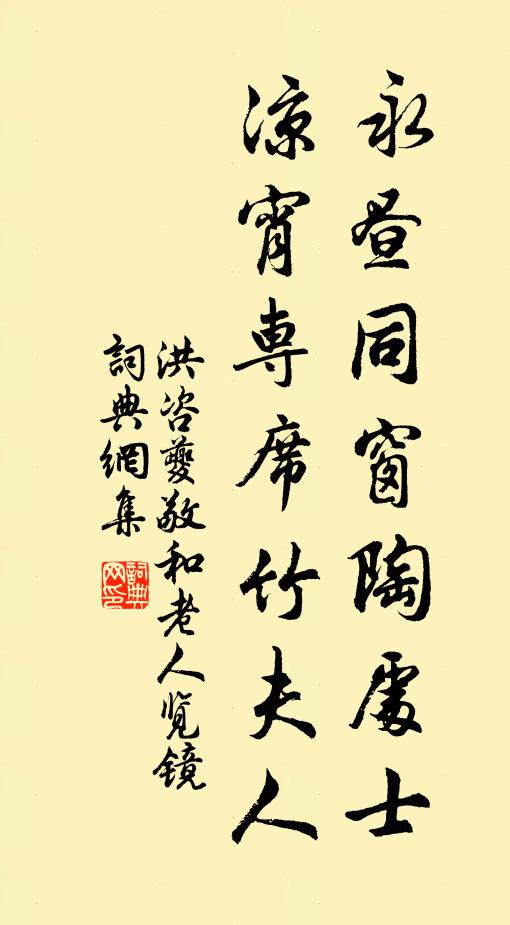 永晝同窗陶處士
涼宵専席竹夫人
洪咨夔敬和老人览镜
詞典網集
詞典网印